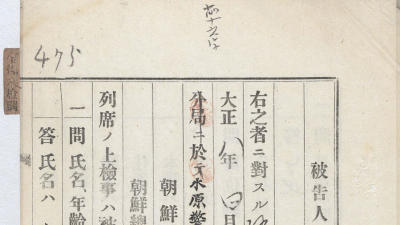 475
被告人
右之者ニ對スル
大正八年四月
分局ニ於テ水原警
朝鮮
朝鮮總
列席ノ上檢事ハ被
一問氏名、年齡
答氏名ハ